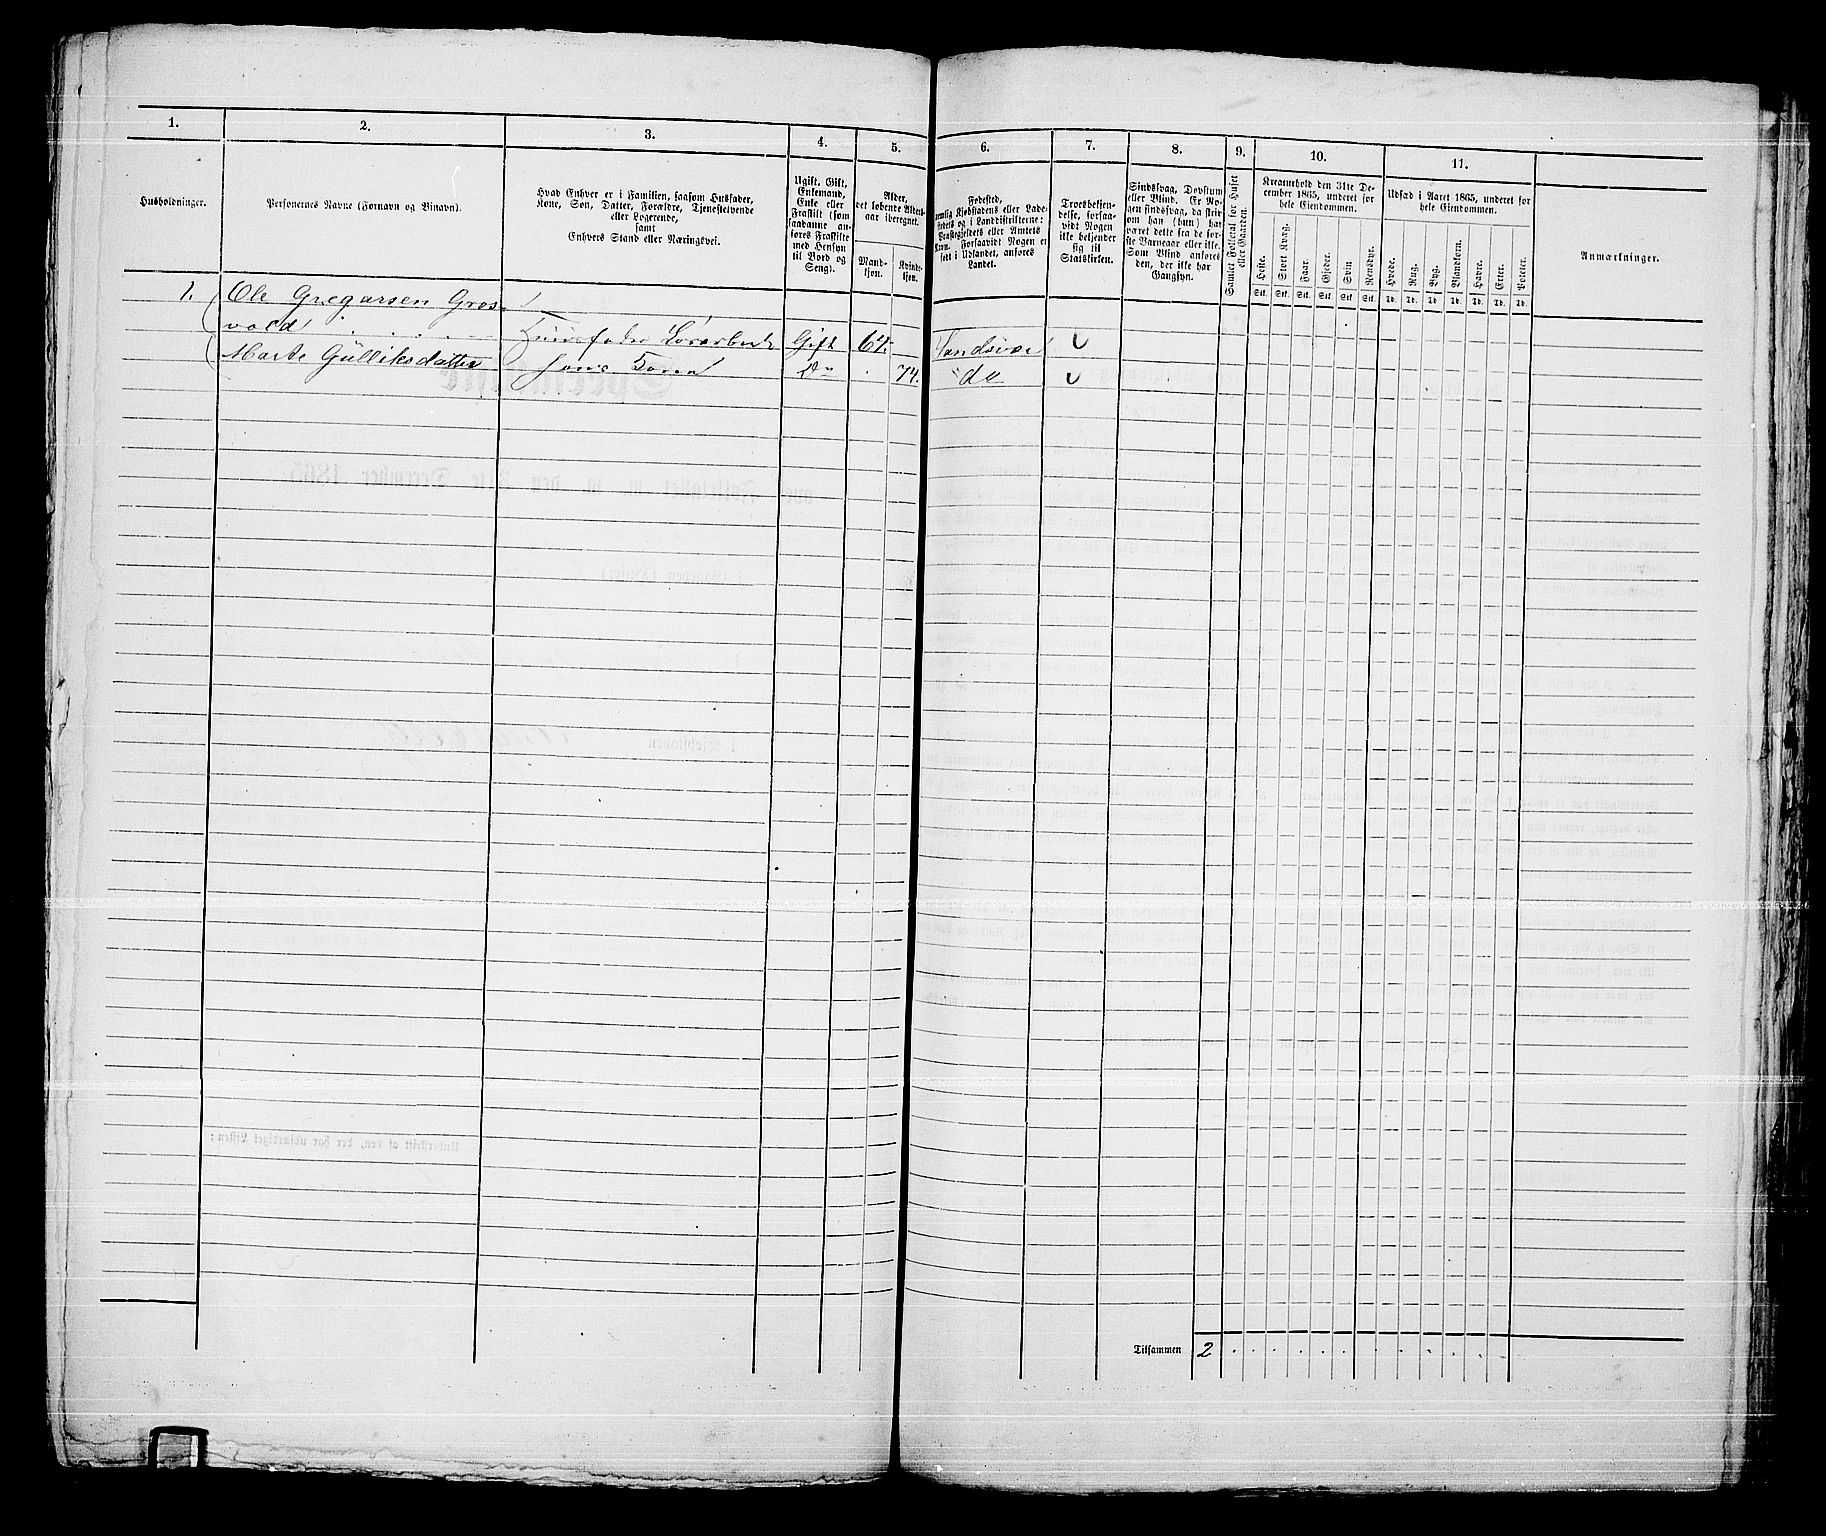 1.
2.
3.
4.
5.
6.
7.
8.
9.
10.
11.
Husholdninger.
Personernes Navne (Fornavn og Binavn).
Hvad Enhver er i Familien, saasom Husfader,
Kone, Søn, Datter, Forældre, Tjenestetyende
eller Logerende,
samt
Enhvers Stand eller Næringsvei.
Ugift, Gift,
Enkemand,
Enke eller
Fraskilt (som
saadanne an-
føres Fraskilte
med Hensyn
til Bord og
Seng).
Alder,
det løbende Alders-
aar iberegnet.
Mand-
kjøn.
Kvinde-
kjøn.
Fødested,
nemlig Kjøbstadens eller Lade-
stedets og i Landdistrikterne:
Præstegjeldets eller Amtets
Navn. Forsaavidt Nogen er
født i Udlandet, anføres
Landet.
Troesbekjen-
delse, forsaa-
vidt Nogen
ikke bekjender
sig til
Statskirken.
Sindssvag, Døvstum
eller Blind. Er No-
gen sindssvag, da skri-
ves om han (hun) har
været dette fra de før-
ste Barneaar eller ikke.
Som Blind anføres
den, der ikke har
Gangsyn.
Samlet Folketal for Huset
eller Gaarden.
Kreaturhold den 31te De-
cember 1865, underet for
hele Eiendommen.
Heste.
Stort Kvæg.
Faar.
Gjeder.
Svin
Rensdyr.
Stk. Stk. Stk. Stk. Stk. Stk.
Udsæd i Aaret 1865, underet for
hele Eiendommen.
Hvede.
Rug.
Byg.
Blandkorn.
Havre.
Erter.
Poteter.
Td. Td. Td. Td. Td. Td. Td.
Anmærkninger.
1. Ole Gregarsen Gros-
vold Huusfader Gift 62 Sandsvær
Marte Gulliksdatter hans Kone Do 74. do
Tilsammen 2